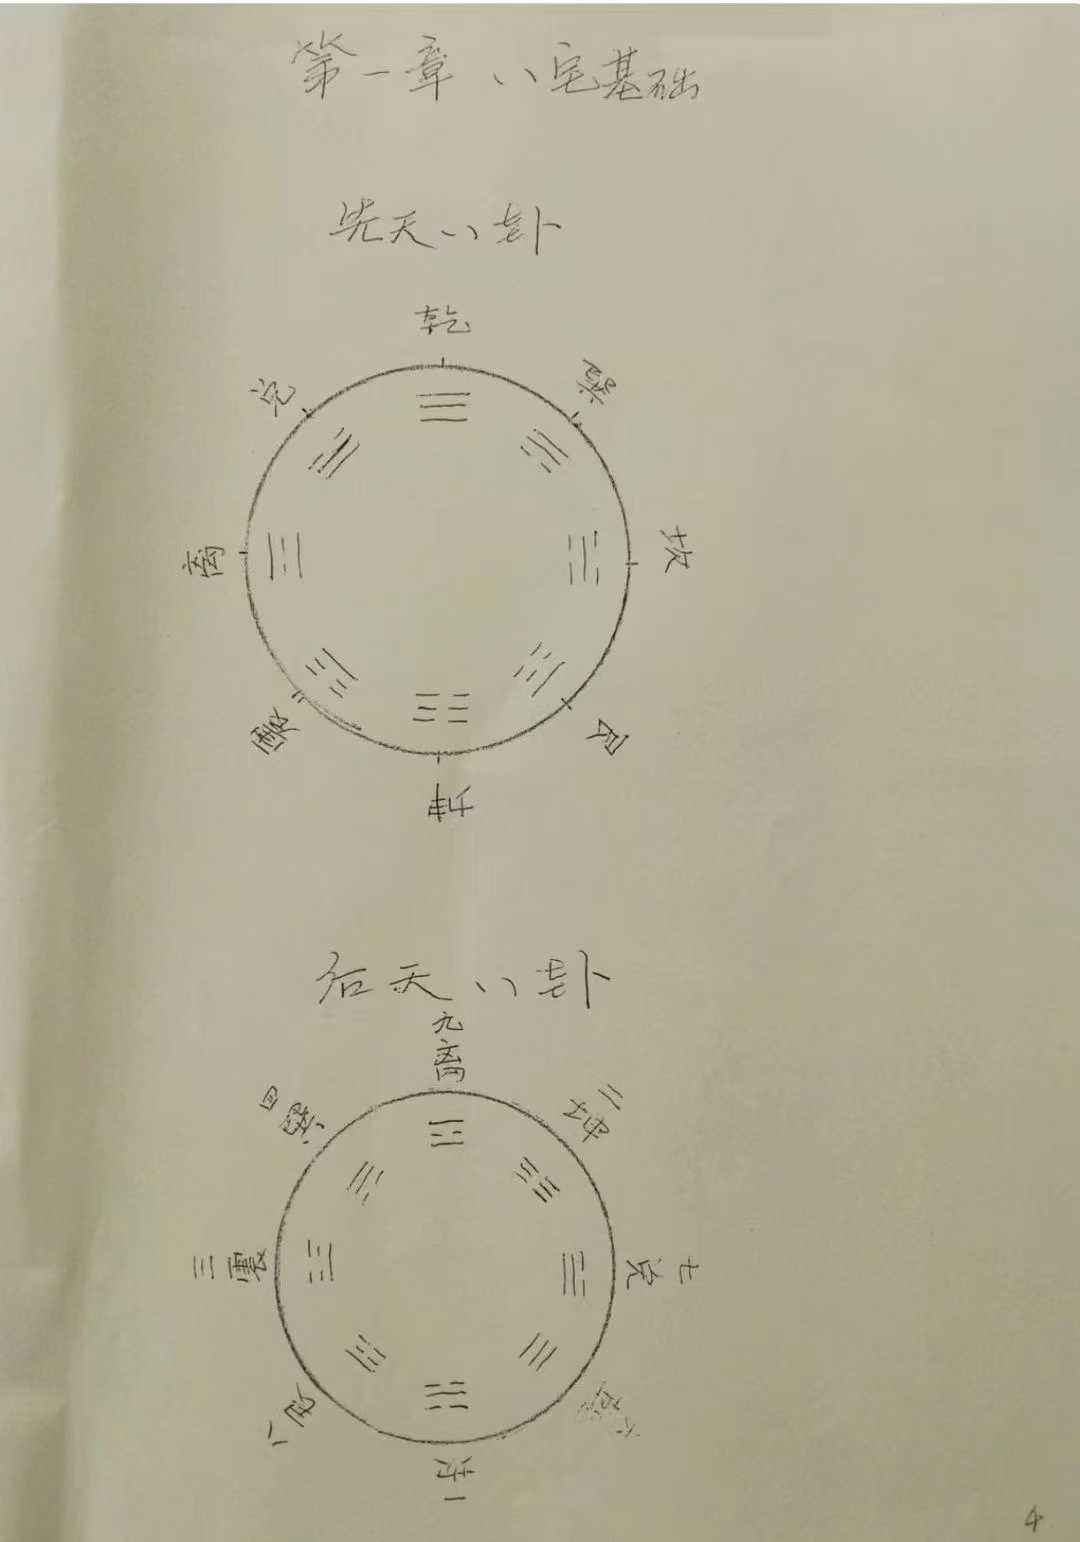 第一章 八宅基础
先天八卦
乾
兑
巽
离
坎
震
艮
坤
后天八卦
九
离
四巽
二坤
三震
七兑
八艮
六乾
坎
一
4